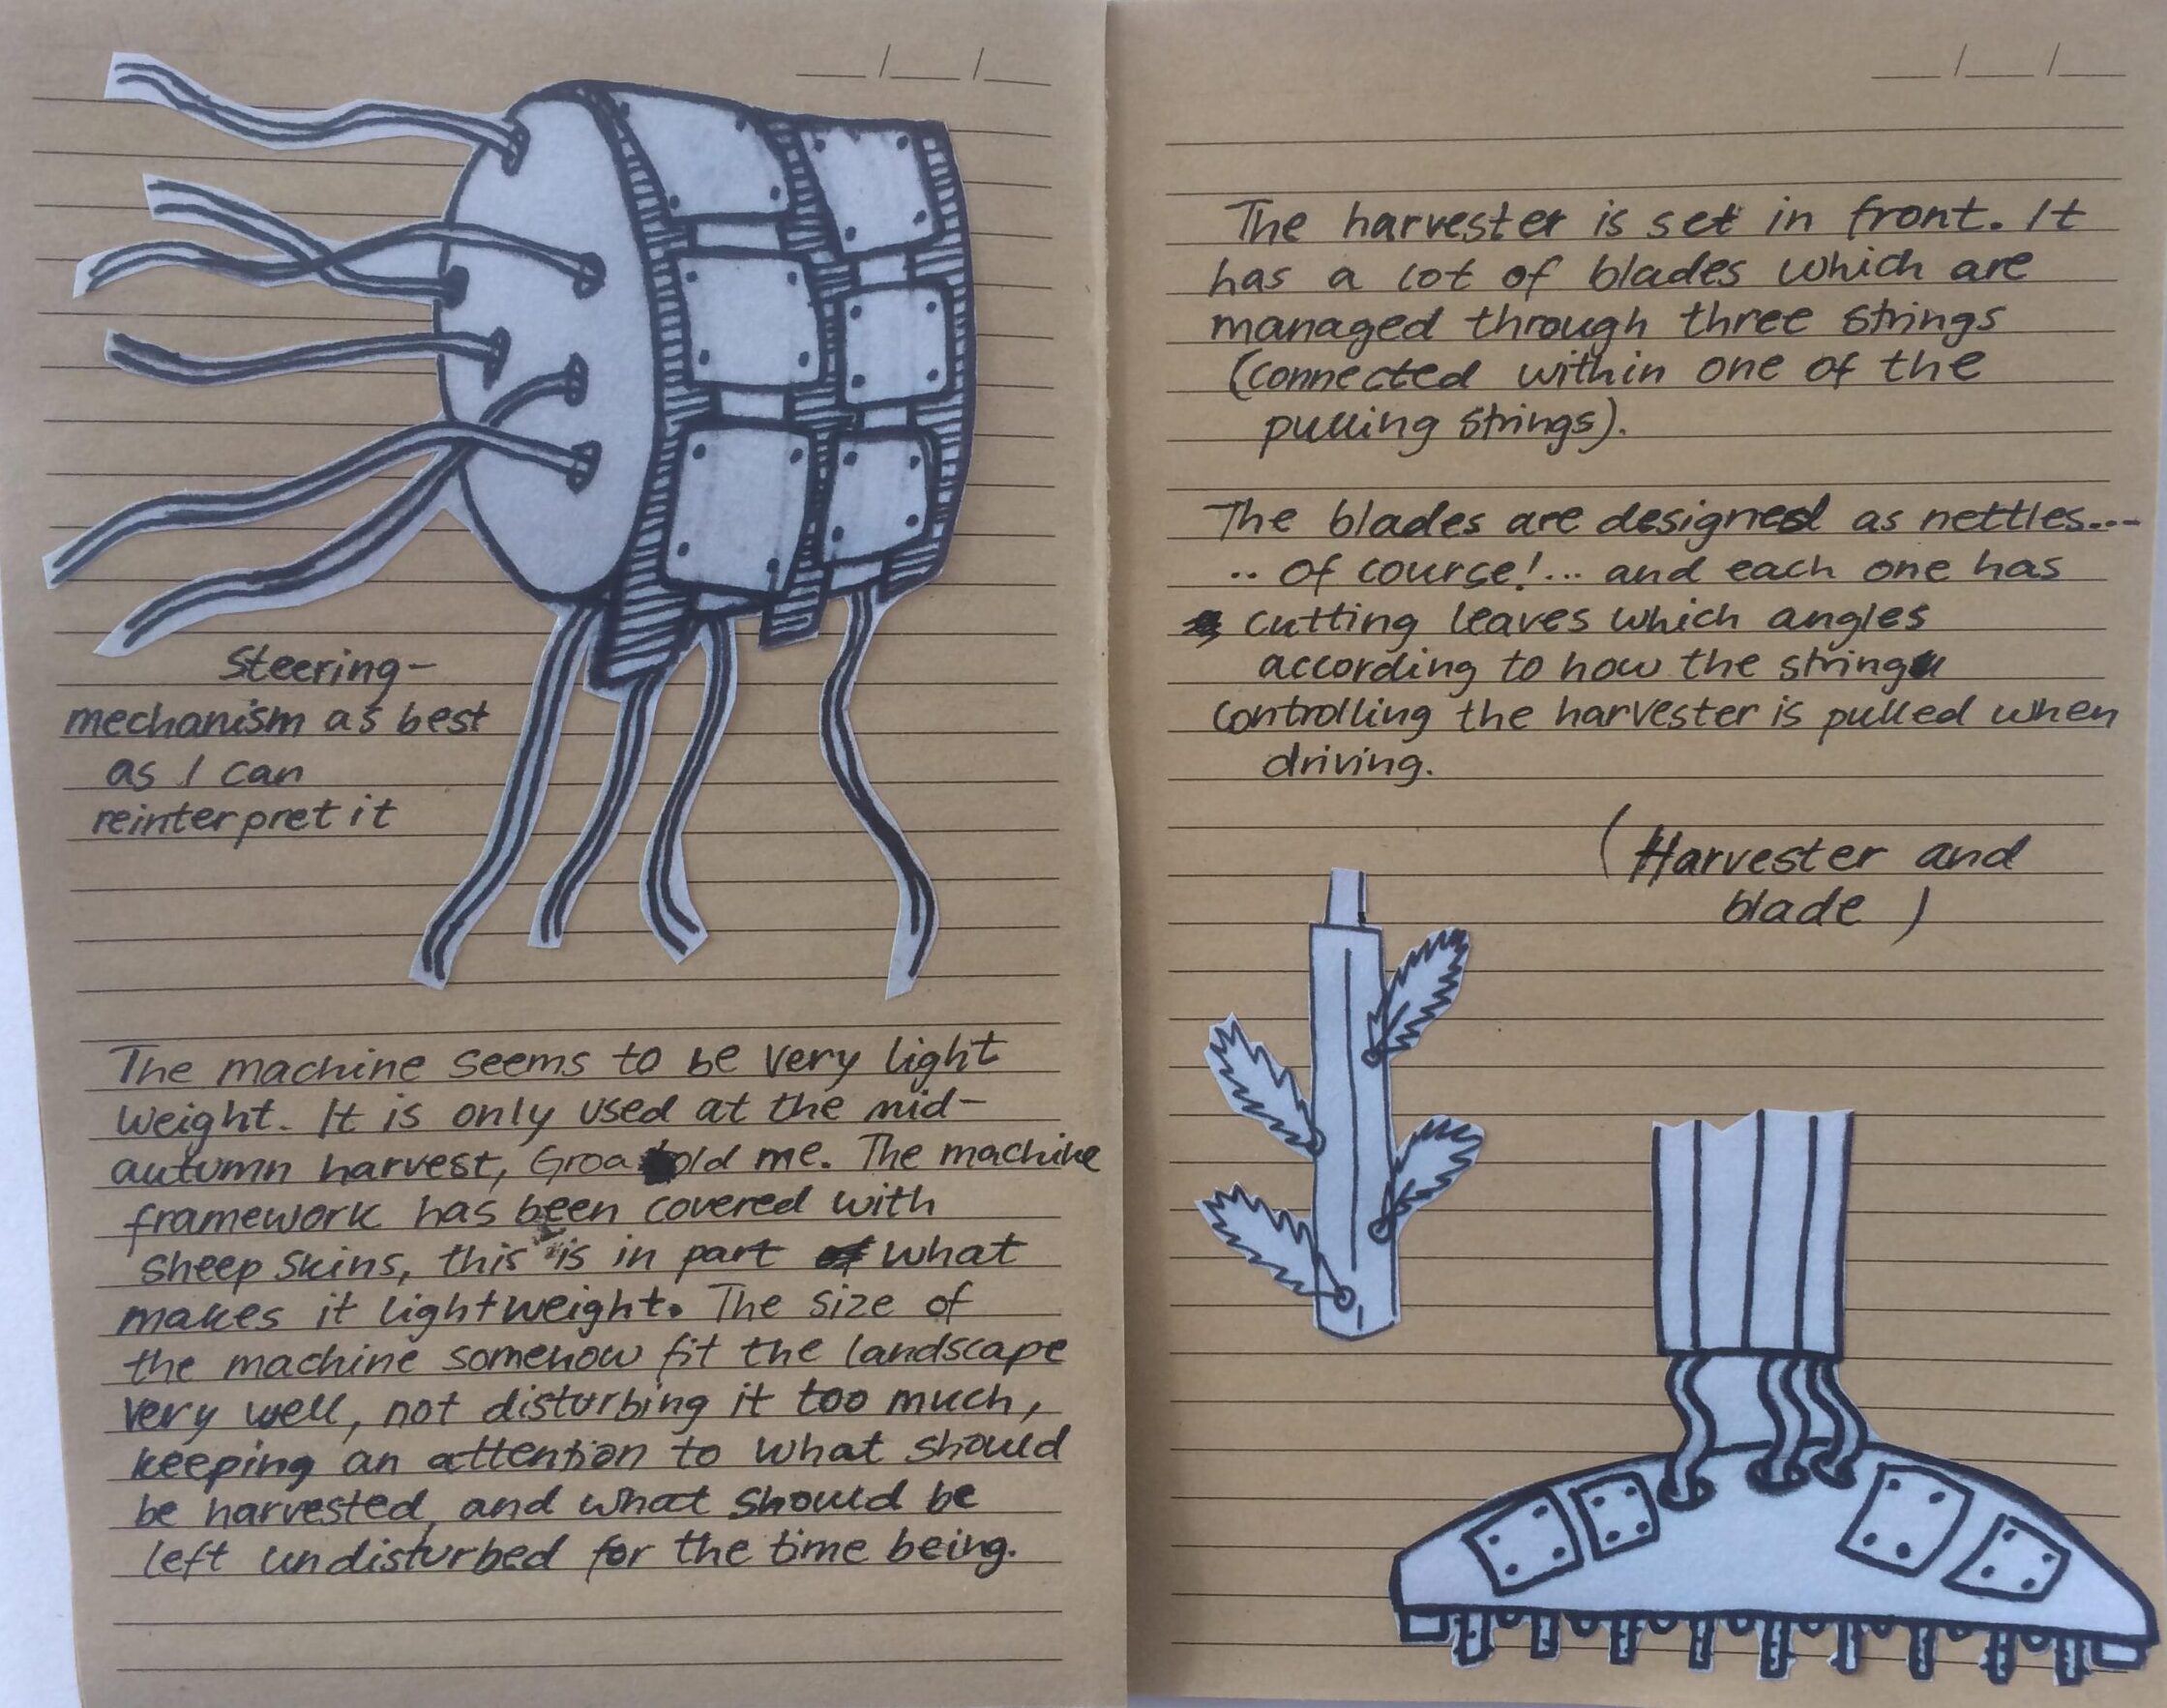 Steering-
mechanism as best
as I can
reinterpret it
The machine seems to be very light
weight. It is only used at the mid-
autumn harvest, Groa told me. The machine
framework has been covered with
sheep skins, this is in part what
makes it lightweight. The size of
the machine somehow fit the landscape
very well, not disturbing it too much,
keeping an attention to what should
be harvested, and what should be
left undisturbed for the time being.
The harvester is set in front. It
has a lot of blades which are
managed through three strings
(connected within one of the
pulling strings).
The blades are designed as nettles....
.. of course!... and each one has
cutting leaves which angles
according to how the string
controlling the harvester is pulled when
driving.
(Harvester and
blade)